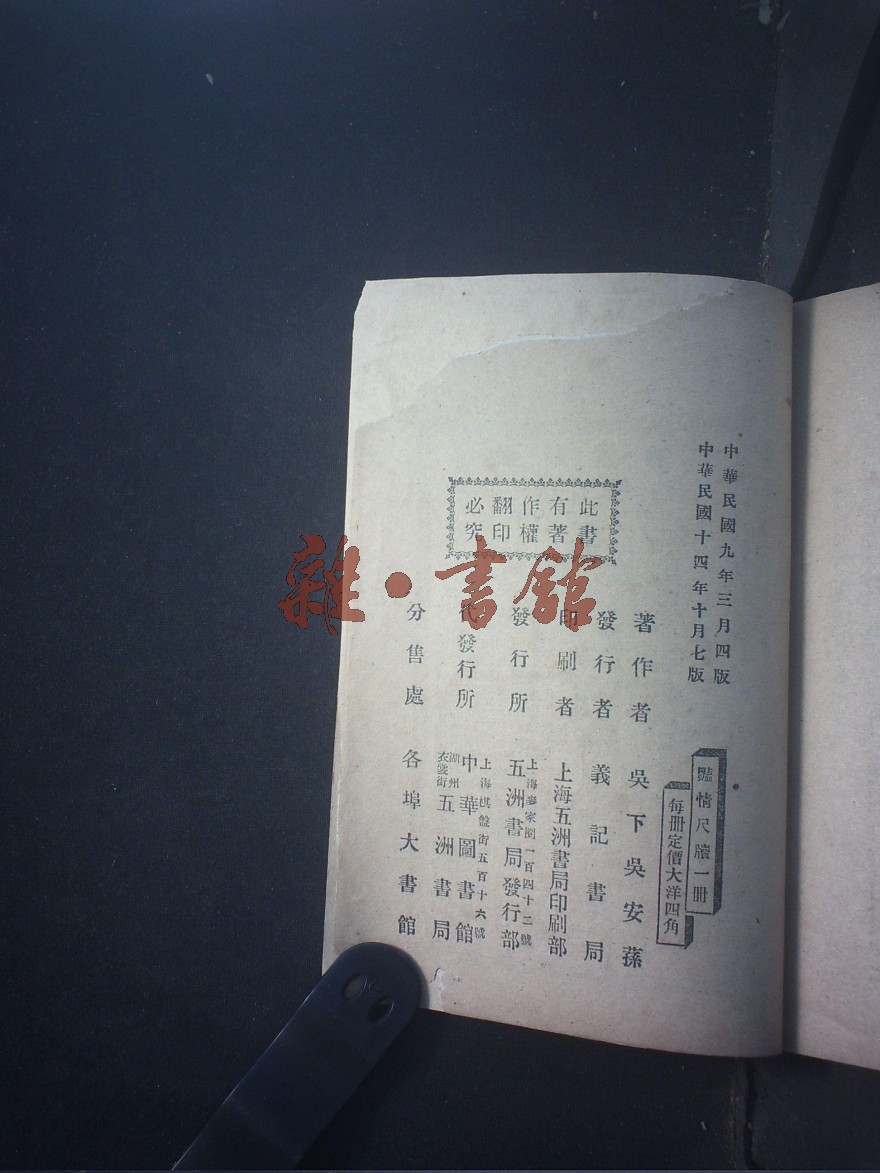 中華民國九年三月四版
中華民國十四年十月七版
豔情尺牘一冊
每冊定價大洋四角
此書
有著
作權
翻印
必究
著作者　吳下吳安蓀
發行者　義記書局
印刷者　上海五洲書局印刷部
發行所　上海麥家圈一百四十二號
五洲書局發行部
代發行所　上海棋盤街五百十六號
中華圖書館
湖州
衣裳街
五洲書局
分售處　各埠大書館
雜·書館